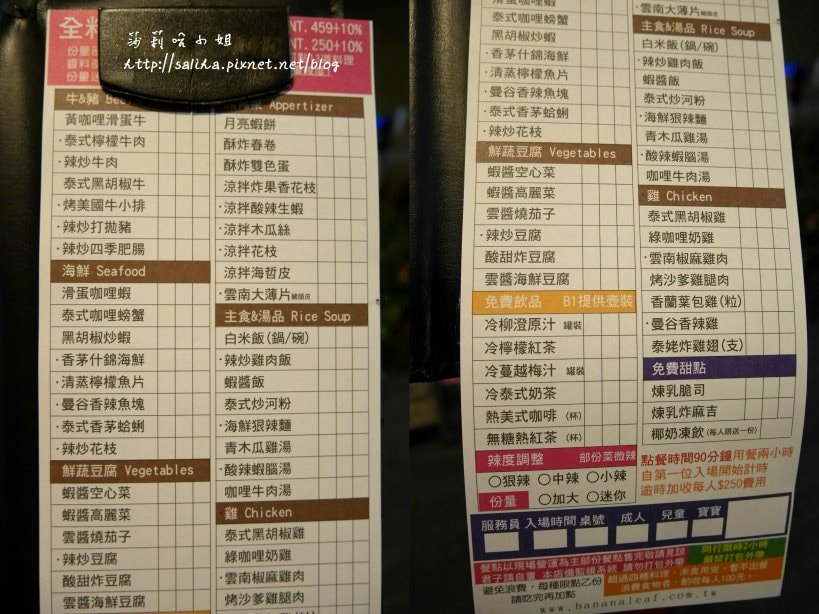 莎莉哈小姐
http://saliha.pixnet.net/blog
NT. 459+10%
NT. 250+10%
牛&豬 Beef
黃咖哩滑蛋牛
·泰式檸檬牛肉
·辣炒牛肉
泰式黑胡椒牛
·烤美國牛小排
·辣炒打拋豬
·辣炒四季肥腸
海鮮 Seafood
滑蛋咖哩蝦
泰式咖哩螃蟹
黑胡椒炒蝦
·香茅什錦海鮮
·清蒸檸檬魚片
·曼谷香辣魚塊
·泰式香茅蛤蜊
·辣炒花枝
鮮蔬豆腐 Vegetables
蝦醬空心菜
蝦醬高麗菜
雲醬燒茄子
·辣炒豆腐
酸甜炸豆腐
雲醬海鮮豆腐
Appertizer
月亮蝦餅
酥炸春卷
酥炸雙色蛋
涼拌炸果香花枝
·涼拌酸辣生蝦
·涼拌木瓜絲
·涼拌花枝
涼拌海哲皮
·雲南大薄片
主食&湯品 Rice Soup
白米飯(鍋/碗)
·辣炒雞肉飯
蝦醬飯
泰式炒河粉
·海鮮狠辣麵
青木瓜雞湯
·酸辣蝦腦湯
咖哩牛肉湯
雞 Chicken
泰式黑胡椒雞
綠咖哩奶雞
·雲南椒麻雞肉
烤沙爹雞腿肉
滑蛋咖哩蝦
泰式咖哩螃蟹
黑胡椒炒蝦
·香茅什錦海鮮
·清蒸檸檬魚片
·曼谷香辣魚塊
·泰式香茅蛤蜊
·辣炒花枝
鮮蔬豆腐 Vegetables
蝦醬空心菜
蝦醬高麗菜
雲醬燒茄子
·辣炒豆腐
酸甜炸豆腐
雲醬海鮮豆腐
免費飲品 B1提供壺裝
冷柳澄原汁 罐裝
冷檸檬紅茶
冷蔓越梅汁 罐裝
冷泰式奶茶
熱美式咖啡 (杯)
無糖熱紅茶 (杯)
辣度調整 部份菜微辣
○狠辣 ○中辣 ○小辣
份量 ○加大 ○迷你
·雲南大薄片
主食&湯品 Rice Soup
白米飯(鍋/碗)
·辣炒雞肉飯
蝦醬飯
泰式炒河粉
·海鮮狠辣麵
青木瓜雞湯
·酸辣蝦腦湯
咖哩牛肉湯
雞 Chicken
泰式黑胡椒雞
綠咖哩奶雞
·雲南椒麻雞肉
烤沙爹雞腿肉
香蘭葉包雞(粒)
·曼谷香辣雞
泰姥炸雞翅(支)
免費甜點
煉乳脆司
煉乳炸麻吉
椰奶凍飲(每人限送一份)
點餐時間90分鐘用餐兩小時
自第一位入場開始計時
逾時加收每人$250費用
服務員 入場時間 桌號 成人 兒童 寶寶
餐點以現場營運為主部份餐點售完敬請見諒
君子請自重 本店備監視系統 請勿打包外帶
同行限時2小時
嚴禁打包外帶
避免浪費，每種限點乙份
請吃完再加點
www.bananaleaf.com.tw